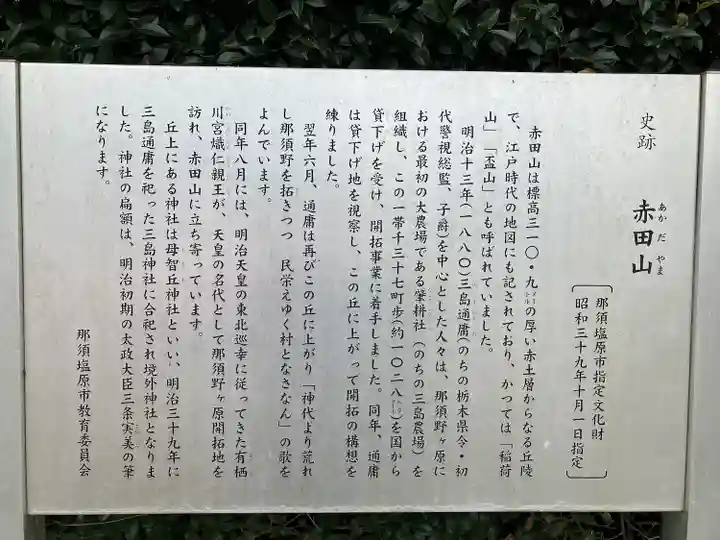 史跡 赤田山
あか だ やま
那須塩原市指定文化財
昭和三十九年十月一日指定
赤田山は標高三一〇・九メートルの厚い赤土層からなる丘陵
で、江戸時代の地図にも記されており、かつては「稲荷
山」「盃山」とも呼ばれていました。
明治十三年(一八八〇)三島通庸(のちの栃木県令・初
代警視総監、子爵)を中心とした人々は、那須野ヶ原に
おける最初の大農場である肇耕社(のちの三島農場)を
組織し、この一帯千三十七町歩(約一〇二八㌶)を国から
貸下げを受け、開拓事業に着手しました。同年、通庸
は貸下げ地を視察し、この丘に上がって開拓の構想を
練りました。
翌年六月、通庸は再びこの丘に上がり「神代より荒れ
し那須野を拓きつつ 民栄えゆく村となさなん」の歌を
よんでいます。
同年八月には、明治天皇の東北巡幸に従ってきた有栖
川宮熾仁親王が、天皇の名代として那須野ヶ原開拓地を
訪れ、赤田山に立ち寄っています。
丘上にある神社は母智丘神社といい、明治三十九年に
三島通庸を祀った三島神社に合祀され境外神社となりま
した。神社の扁額は、明治初期の太政大臣三条実美の筆
になります。
那須塩原市教育委員会